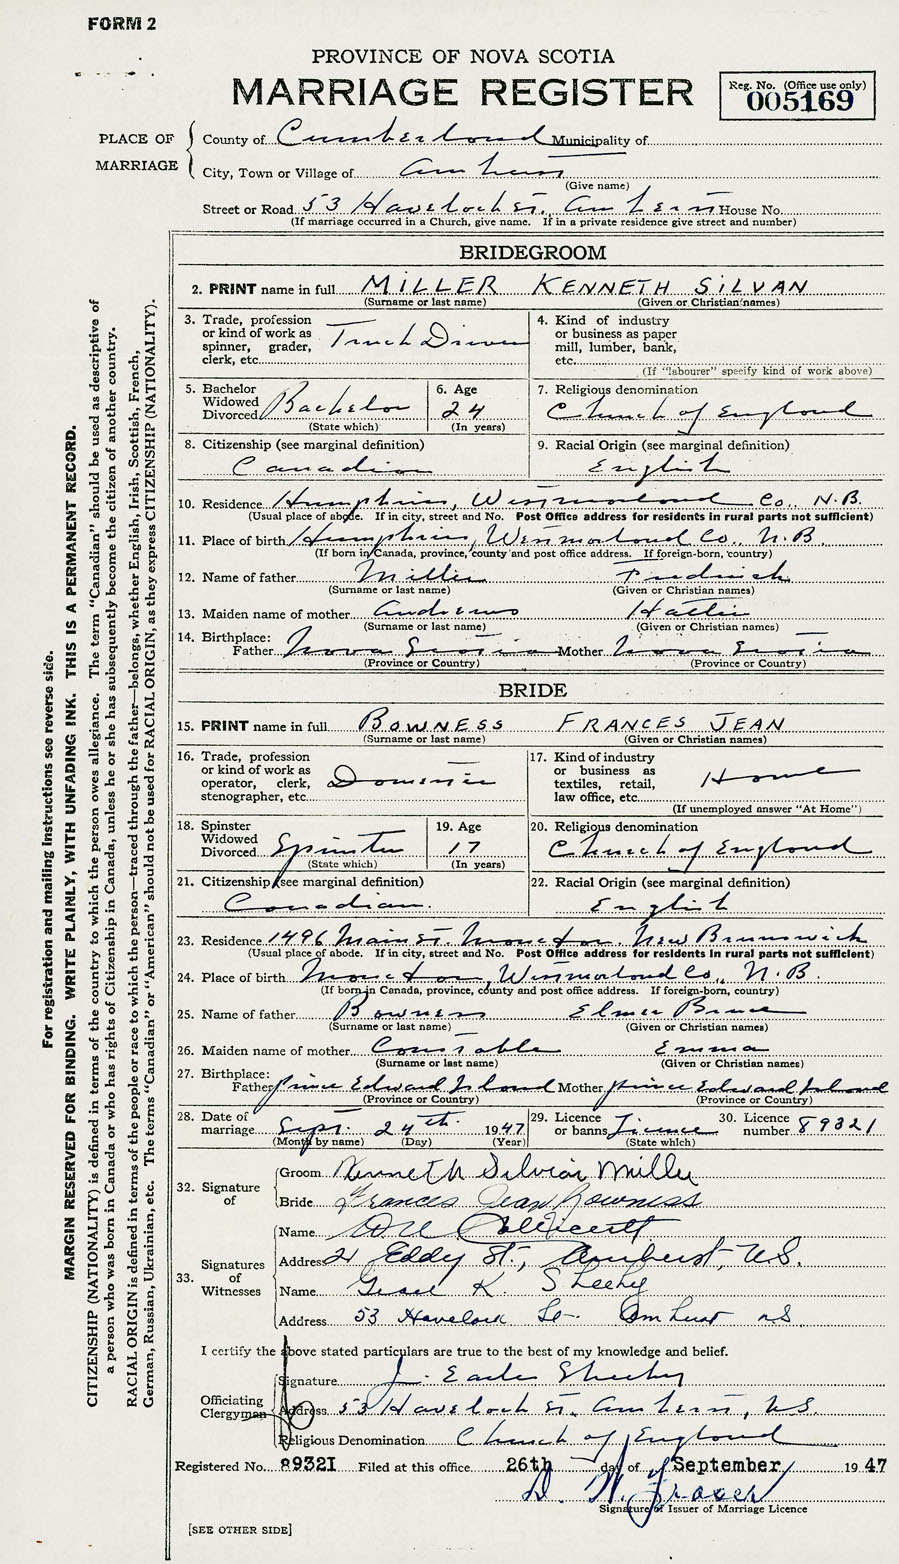 FORM 2
PROVINCE OF NOVA SCOTIA
MARRIAGE REGISTER
Reg. No. (Office use only)
005169
PLACE OF MARRIAGE
County of Cumberland Municipality of
City, Town or Village of Amherst
(Give name)
Street or Road 53 Havelock St. Amherst House No.
(If marriage occurred in a Church, give name. If in a private residence give street and number)
BRIDEGROOM
2. PRINT name in full MILLER KENNETH SILVAN
(Surname or last name) (Given or Christian names)
3. Trade, profession or kind of work as spinner, grader, clerk, etc. Truck Driver
4. Kind of industry or business as paper mill, lumber, bank, etc.
(If "labourer" specify kind of work above)
5. Bachelor Widowed Divorced Bachelor
(State which)
6. Age 24
(In years)
7. Religious denomination
Church of England
8. Citizenship (see marginal definition)
Canadian
9. Racial Origin (see marginal definition)
English
10. Residence Humphries, Westmorland Co., N.B.
(Usual place of abode. If in city, street and No. Post Office address for residents in rural parts not sufficient)
11. Place of birth Humphries, Westmorland Co., N.B.
(If born in Canada, province, county and post office address. If foreign-born, country)
12. Name of father Miller Fredrick
(Surname or last name) (Given or Christian names)
13. Maiden name of mother Andrews Hattie
(Surname or last name) (Given or Christian names)
14. Birthplace:
Father Nova Scotia Mother Nova Scotia
(Province or Country) (Province or Country)
BRIDE
15. PRINT name in full BOWNESS FRANCES JEAN
(Surname or last name) (Given or Christian names)
16. Trade, profession or kind of work as operator, clerk, stenographer, etc. Domestic
17. Kind of industry or business as textiles, retail, law office, etc. Home
(If unemployed answer "At Home")
18. Spinster Widowed Divorced Spinster
(State which)
19. Age 17
(In years)
20. Religious denomination
Church of England
21. Citizenship (see marginal definition)
Canadian.
22. Racial Origin (see marginal definition)
English
23. Residence 1496 Main St Moncton, New Brunswick
(Usual place of abode. If in city, street and No. Post Office address for residents in rural parts not sufficient)
24. Place of birth Moncton, Westmorland Co., N.B.
(If born in Canada, province, county and post office address. If foreign-born, country)
25. Name of father Bowness Elmer Bruce
(Surname or last name) (Given or Christian names)
26. Maiden name of mother Constable Emma
(Surname or last name) (Given or Christian names)
27. Birthplace:
Father Prince Edward Island Mother Prince Edward Island
(Province or Country) (Province or Country)
28. Date of marriage Sept. 24th 1947
(Month by name) (Day) (Year)
29. Licence or banns Licence
(State which)
30. Licence number 89321
32. Signature of
Groom Kenneth Silvian Miller
Bride Frances Jean Bowness
33. Signatures of Witnesses
Name
Address 21 Eddy St., Amherst, N.S.
Name Grace K. Sheehy
Address 53 Havelock St- Amherst NS.
I certify the above stated particulars are true to the best of my knowledge and belief.
Officiating Clergyman
Signature J. Earle Sheehy
Address 53 Havelock St. Amherst, N.S.
Religious Denomination Church of England
Registered No. 89321 Filed at this office 26th day of September 1947
D. W. Fraser
Signature of Issuer of Marriage Licence
[SEE OTHER SIDE]
For registration and mailing instructions see reverse side.
MARGIN RESERVED FOR BINDING. WRITE PLAINLY, WITH UNFADING INK. THIS IS A PERMANENT RECORD.
CITIZENSHIP (NATIONALITY) is defined in terms of the country to which the person owes allegiance. The term "Canadian" should be used as descriptive of
a person who was born in Canada or who has rights of Citizenship in Canada, unless he or she has subsequently become the citizen of another country.
RACIAL ORIGIN is defined in terms of the people or race to which the person—traced through the father—belongs, whether English, Irish, Scottish, French,
German, Russian, Ukrainian, etc. The terms "Canadian" or "American" should not be used for RACIAL ORIGIN, as they express CITIZENSHIP (NATIONALITY).